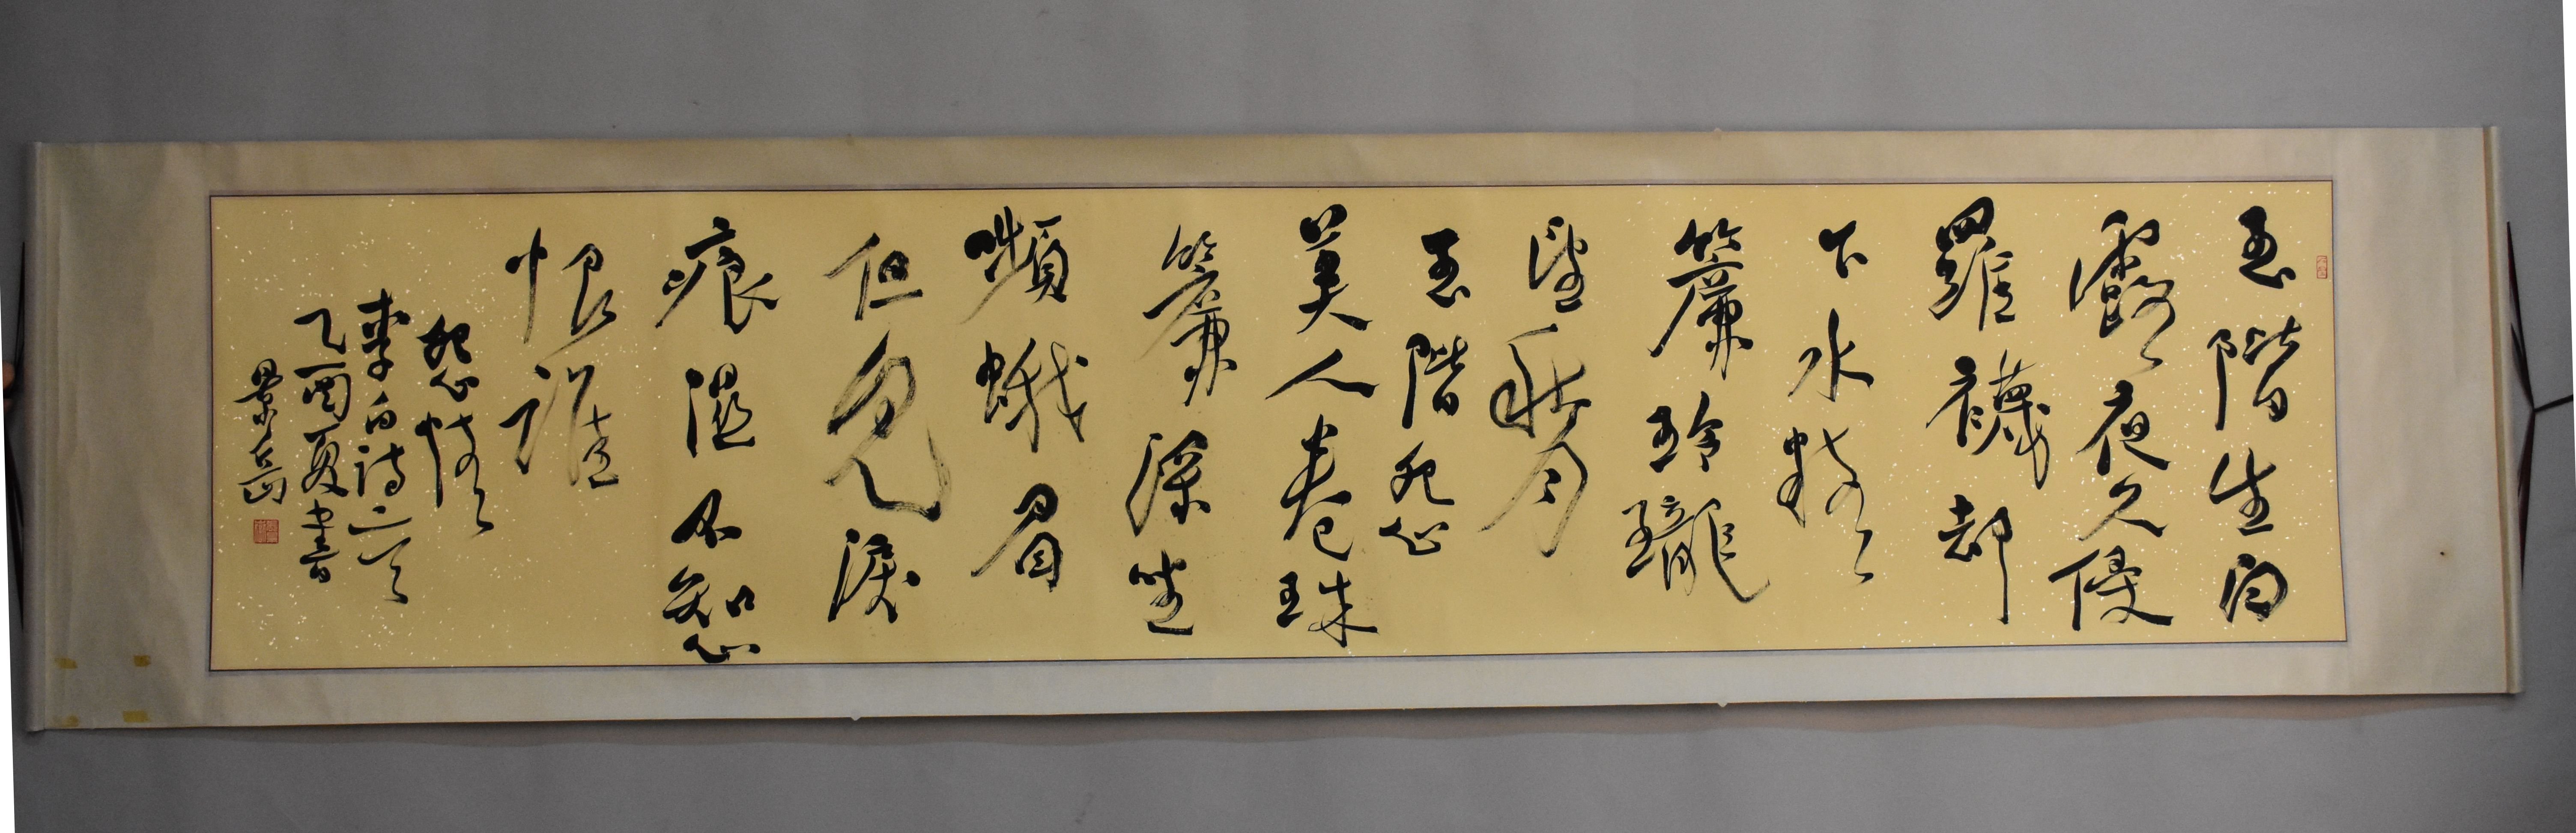 玉階生白
露夜久侵
羅襪却
下水精
簾玲瓏
望秋月
玉階怨
美人卷珠
簾深坐
嚬蛾眉
但見淚
痕濕不知心
恨誰
怨情
李白詩二首
乙酉夏書
景岳